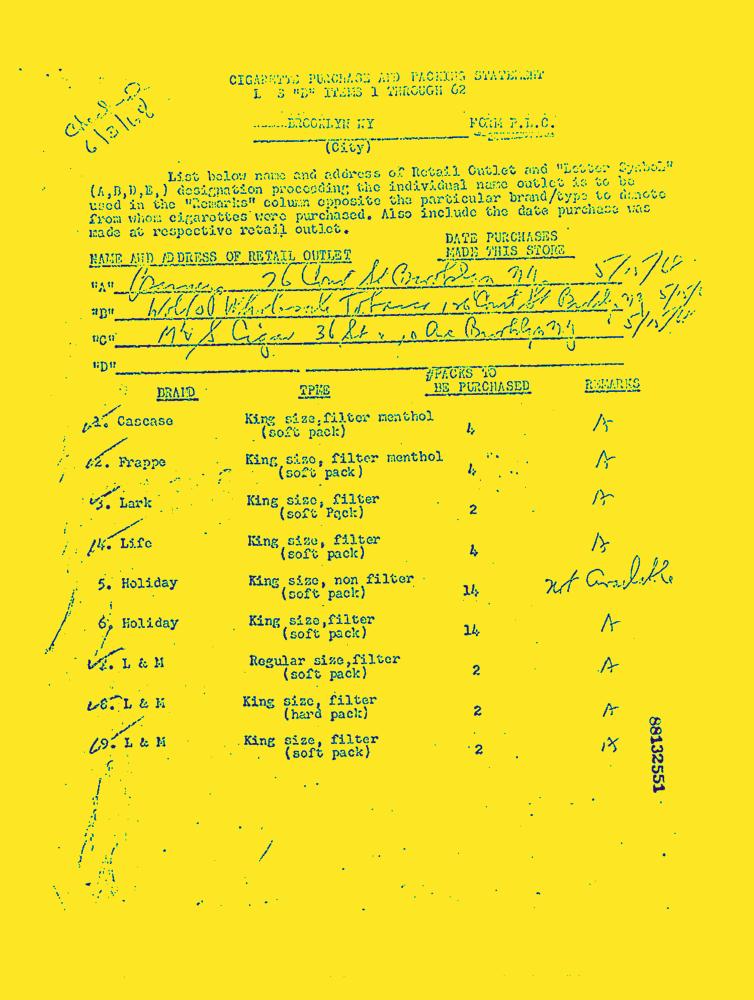 CIGARETTE PURCHASE AND PACKING STATEMENT
L S "D" ITEMS 1 THROUGH 62
Checked
6/3/68
BROOKLYN NY FORM P.L.C.
(City)
List below name and address of Retail Outlet and "Letter Symbol"
(A,B,D,E,) designation proceeding the individual name outlet is to be
used in the "Remarks" column opposite the particular brand/type to denote
from whom cigarettes were purchased. Also include the date purchase was
made at respective retail outlet.
DATE PURCHASES
NAME AND ADDRESS OF RETAIL OUTLET MADE THIS STORE
"A" 26 Court St Brooklyn NY
"B" Wholesale Tobacco Court St NY
"C" Cigar 36 St Ave Brooklyn NY
"D"
BRAND TYPE #PACKS TO BE PURCHASED REMARKS
1. Cascase King size,filter menthol 4 A
(soft pack)
2. Frappe King size, filter menthol 4 A
(soft pack)
3. Lark King size, filter 2 A
(soft Pack)
4. Life King size, filter 4 A
(soft pack)
5. Holiday King size, non filter 14 not available
(soft pack)
6. Holiday King size,filter 14 A
(soft pack)
7. L & M Regular size,filter 2 A
(soft pack)
8. L & M King size, filter 2 A
(hard pack)
9. L & M King size, filter 2 A
(soft pack)
88132551